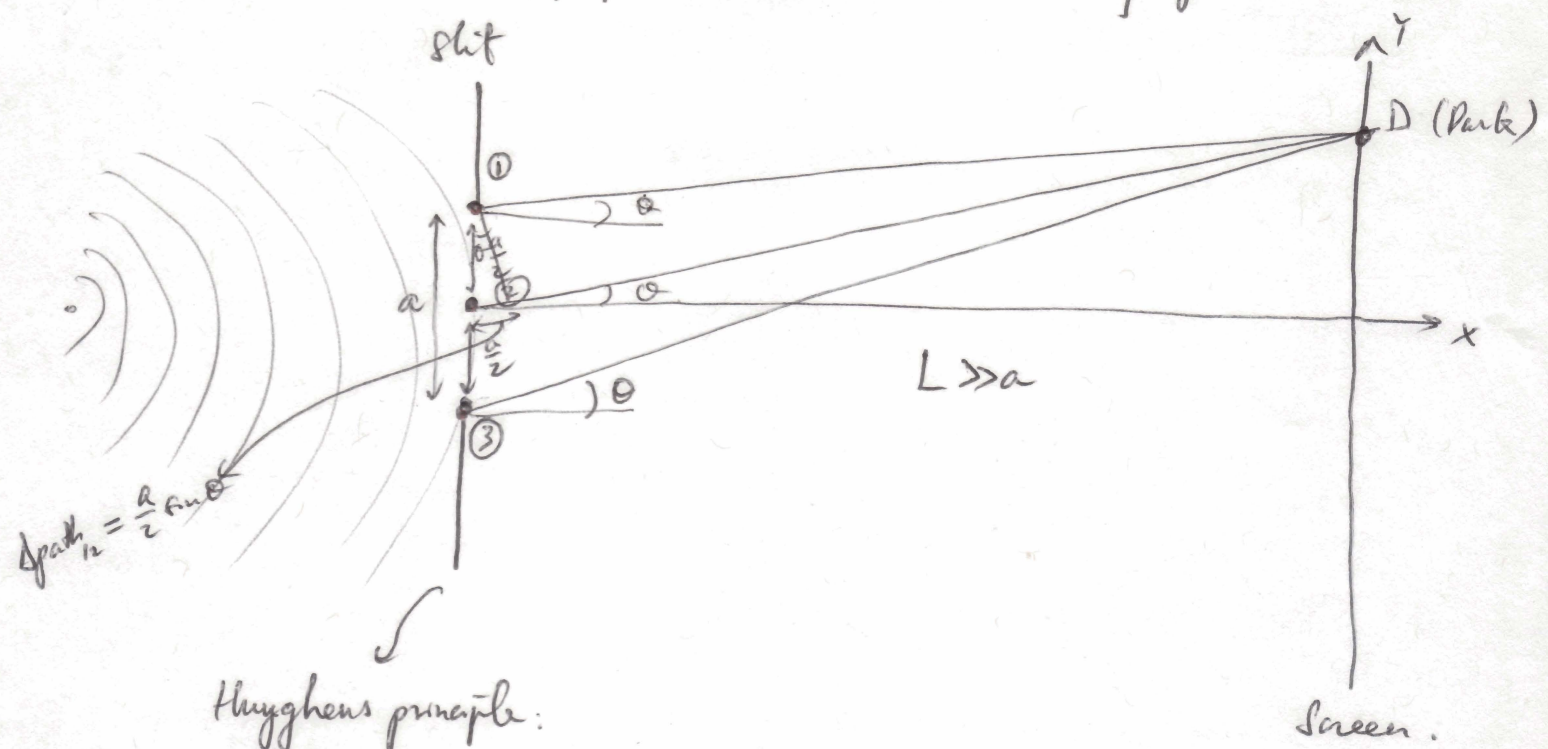 Slit
Y
D (Dark)
①
θ
a/2
②
a
θ
x
a/2
L >> a
θ
③
Δpath₁₂ = a/2 sin θ
Huyghens principle:
Screen.